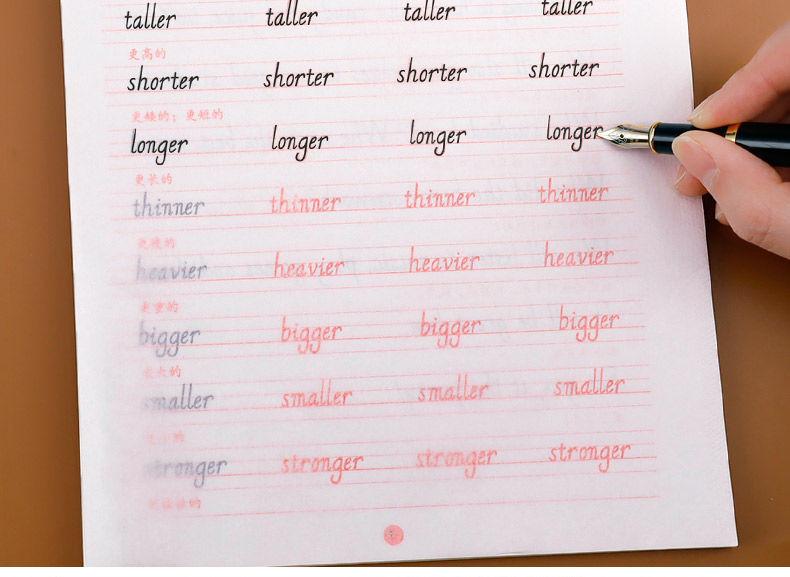 taller taller taller taller
更高的
shorter shorter shorter shorter
更矮的；更短的
longer longer longer longer
更长的
thinner thinner thinner thinner
更瘦的
heavier heavier heavier heavier
更重的
bigger bigger bigger bigger
更大的
smaller smaller smaller smaller
更小的
stronger stronger stronger stronger